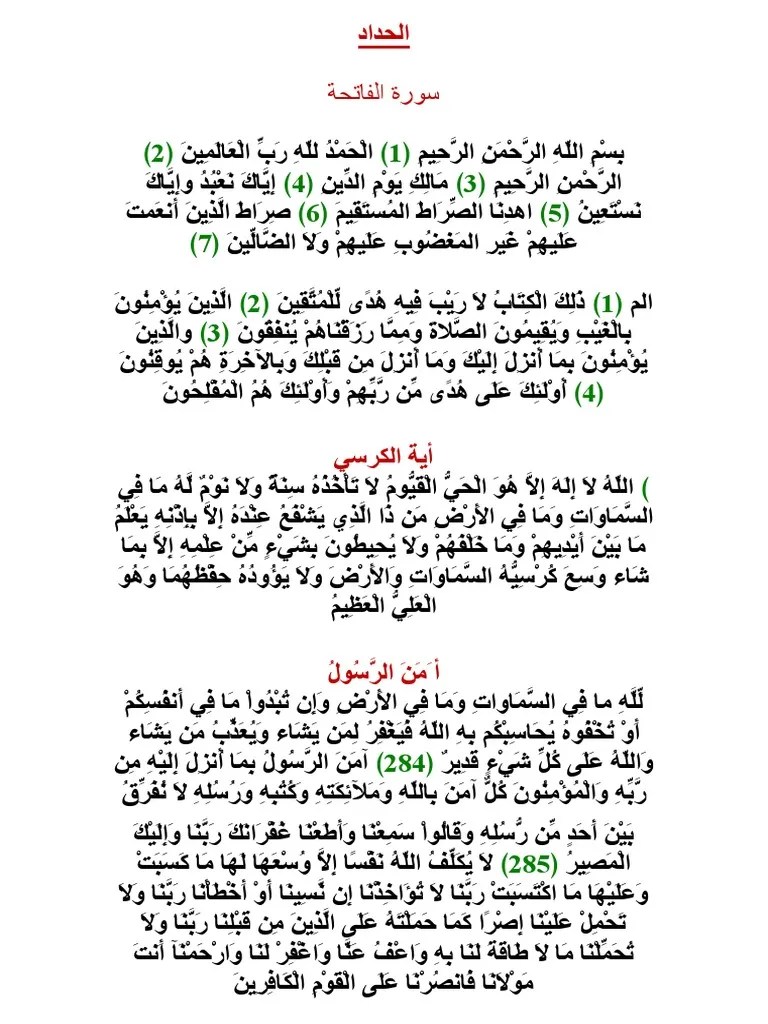 الحداد
سورة الفاتحة
بِسْمِ اللّهِ الرَّحْمَنِ الرَّحِيمِ (1) الْحَمْدُ للّهِ رَبِّ الْعَالَمِينَ (2)
الرَّحْمنِ الرَّحِيمِ (3) مَالِكِ يَوْمِ الدِّينِ (4) إِيَّاكَ نَعْبُدُ وإِيَّاكَ
نَسْتَعِينُ (5) اهدِنَا الصِّرَاطَ المُستَقِيمَ (6) صِرَاطَ الَّذِينَ أَنعَمتَ
عَلَيهِمْ غَيرِ المَغضُوبِ عَلَيهِمْ وَلاَ الضَّالِّينَ (7)
الم (1) ذَلِكَ الْكِتَابُ لاَ رَيْبَ فِيهِ هُدًى لِّلْمُتَّقِينَ (2) الَّذِينَ يُؤْمِنُونَ
بِالْغَيْبِ وَيُقِيمُونَ الصَّلاةَ وَمِمَّا رَزَقْنَاهُمْ يُنفِقُونَ (3) والَّذِينَ
يُؤْمِنُونَ بِمَا أُنزِلَ إِلَيْكَ وَمَا أُنزِلَ مِن قَبْلِكَ وَبِالآخِرَةِ هُمْ يُوقِنُونَ
(4) أُوْلَئِكَ عَلَى هُدًى مِّن رَّبِّهِمْ وَأُوْلَئِكَ هُمُ الْمُفْلِحُونَ
أية الكرسي
) اللّهُ لاَ إِلَهَ إِلاَّ هُوَ الْحَيُّ الْقَيُّومُ لاَ تَأْخُذُهُ سِنَةٌ وَلاَ نَوْمٌ لَّهُ مَا فِي
السَّمَاوَاتِ وَمَا فِي الأَرْضِ مَن ذَا الَّذِي يَشْفَعُ عِنْدَهُ إِلاَّ بِإِذْنِهِ يَعْلَمُ
مَا بَيْنَ أَيْدِيهِمْ وَمَا خَلْفَهُمْ وَلاَ يُحِيطُونَ بِشَيْءٍ مِّنْ عِلْمِهِ إِلاَّ بِمَا
شَاء وَسِعَ كُرْسِيُّهُ السَّمَاوَاتِ وَالأَرْضَ وَلاَ يَؤُودُهُ حِفْظُهُمَا وَهُوَ
الْعَلِيُّ الْعَظِيمُ
أَمَنَ الرَّسُولُ
لِّلَّهِ ما فِي السَّمَاواتِ وَمَا فِي الأَرْضِ وَإِن تُبْدُواْ مَا فِي أَنفُسِكُمْ
أَوْ تُخْفُوهُ يُحَاسِبْكُم بِهِ اللّهُ فَيَغْفِرُ لِمَن يَشَاء وَيُعَذِّبُ مَن يَشَاء
وَاللّهُ عَلَى كُلِّ شَيْءٍ قَدِيرٌ (284) آمَنَ الرَّسُولُ بِمَا أُنزِلَ إِلَيْهِ مِن
رَّبِّهِ وَالْمُؤْمِنُونَ كُلٌّ آمَنَ بِاللّهِ وَمَلآئِكَتِهِ وَكُتُبِهِ وَرُسُلِهِ لاَ نُفَرِّقُ
بَيْنَ أَحَدٍ مِّن رُّسُلِهِ وَقَالُواْ سَمِعْنَا وَأَطَعْنَا غُفْرَانَكَ رَبَّنَا وَإِلَيْكَ
الْمَصِيرُ (285) لاَ يُكَلِّفُ اللّهُ نَفْسًا إِلاَّ وُسْعَهَا لَهَا مَا كَسَبَتْ
وَعَلَيْهَا مَا اكْتَسَبَتْ رَبَّنَا لاَ تُؤَاخِذْنَا إِن نَّسِينَا أَوْ أَخْطَأْنَا رَبَّنَا وَلاَ
تَحْمِلْ عَلَيْنَا إِصْرًا كَمَا حَمَلْتَهُ عَلَى الَّذِينَ مِن قَبْلِنَا رَبَّنَا وَلاَ
تُحَمِّلْنَا مَا لاَ طَاقَةَ لَنَا بِهِ وَاعْفُ عَنَّا وَاغْفِرْ لَنَا وَارْحَمْنَآ أَنتَ
مَوْلاَنَا فَانصُرْنَا عَلَى الْقَوْمِ الْكَافِرِينَ